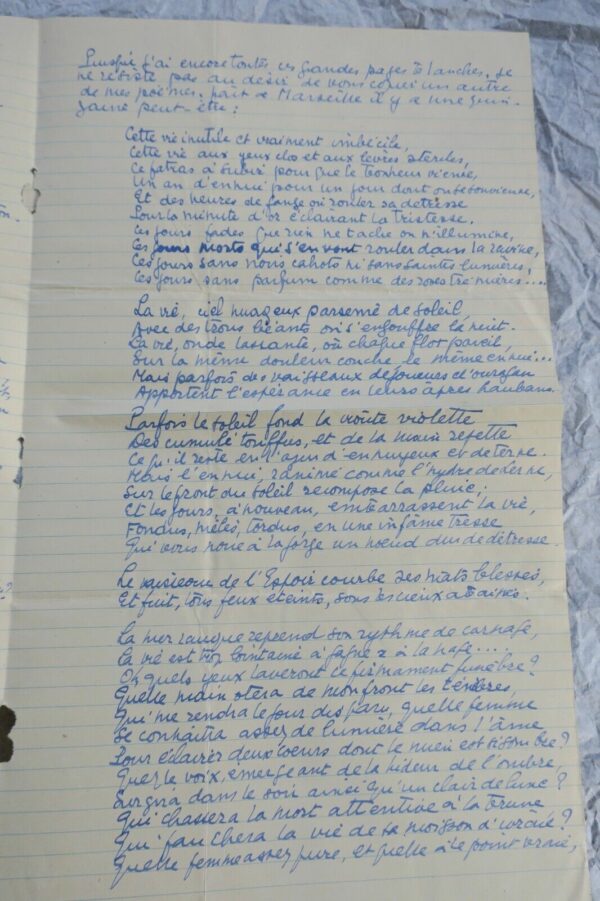 Puisque j'ai encore toutes ces grandes pages blanches, je
ne résiste pas au désir de vous copier un autre
de mes poèmes, fait à Marseille il y a une quin-
zaine peut-être :
Cette vie inutile et vraiment imbécile,
Cette vie aux yeux clos et aux lèvres stériles,
Ce fatras à subir pour que le bonheur vienne,
Un an d'ennui pour un jour dont on se souvienne,
Et des heures de fange où rouler sa détresse
Pour la minute d'or éclairant la tristesse.
Ces jours fades que rien ne tache ou n'illumine,
Ces jours morts qui s'en vont rouler dans la ravine,
Ces jours sans noirs cahots ni sans saintes lumières,
Ces jours sans parfum comme des roses trémières....
La vie, ciel nuageux parsemé de soleil,
Avec des trous béants où s'engouffre la nuit.
La vie, onde lassante, où chaque flot pareil,
Sur la même douleur couche le même ennui...
Mais parfois des vaisseaux déjoueurs d'ouragan
Apportent l'espérance en leurs âpres haubans.
Parfois le soleil fond la voûte violette
Des cumuli touffus, et de la main rejette
Ce qu'il reste en l'azur d'ennuyeux et de terne.
Mais l'ennui, ranimé comme l'hydre de Lerne,
Sur le front du soleil recompose la pluie;
Et les jours, à nouveau, embarrassent la vie,
Fondus, mêlés, tordus, en une infâme tresse
Qui vous noue à la gorge un noeud dur de détresse.
Le vaisseau de l'Espoir courbe ses mâts blessés,
Et fuit, tous feux éteints, sous les cieux abaissés.
La mer rauque reprend son rythme de carnage,
La vie est trop lointaine à gagner à la nage....
Oh, quels yeux laveront ce firmament funèbre ?
Quelle main ôtera de mon front les ténèbres,
Qui me rendra le jour disparu, quelle femme
Se connaîtra assez de lumière dans l'âme
Pour éclairer deux coeurs dont le mien est si sombre ?
Quelle voix, émergeant de la hideur de l'ombre,
Surgira dans le soir ainsi qu'un clair de lune ?
Qui chassera la mort attentive à la brune
Qui fauchera la vie de sa moisson d'ivraie ?
Quelle femme assez pure, et quelle à ce point vraie,